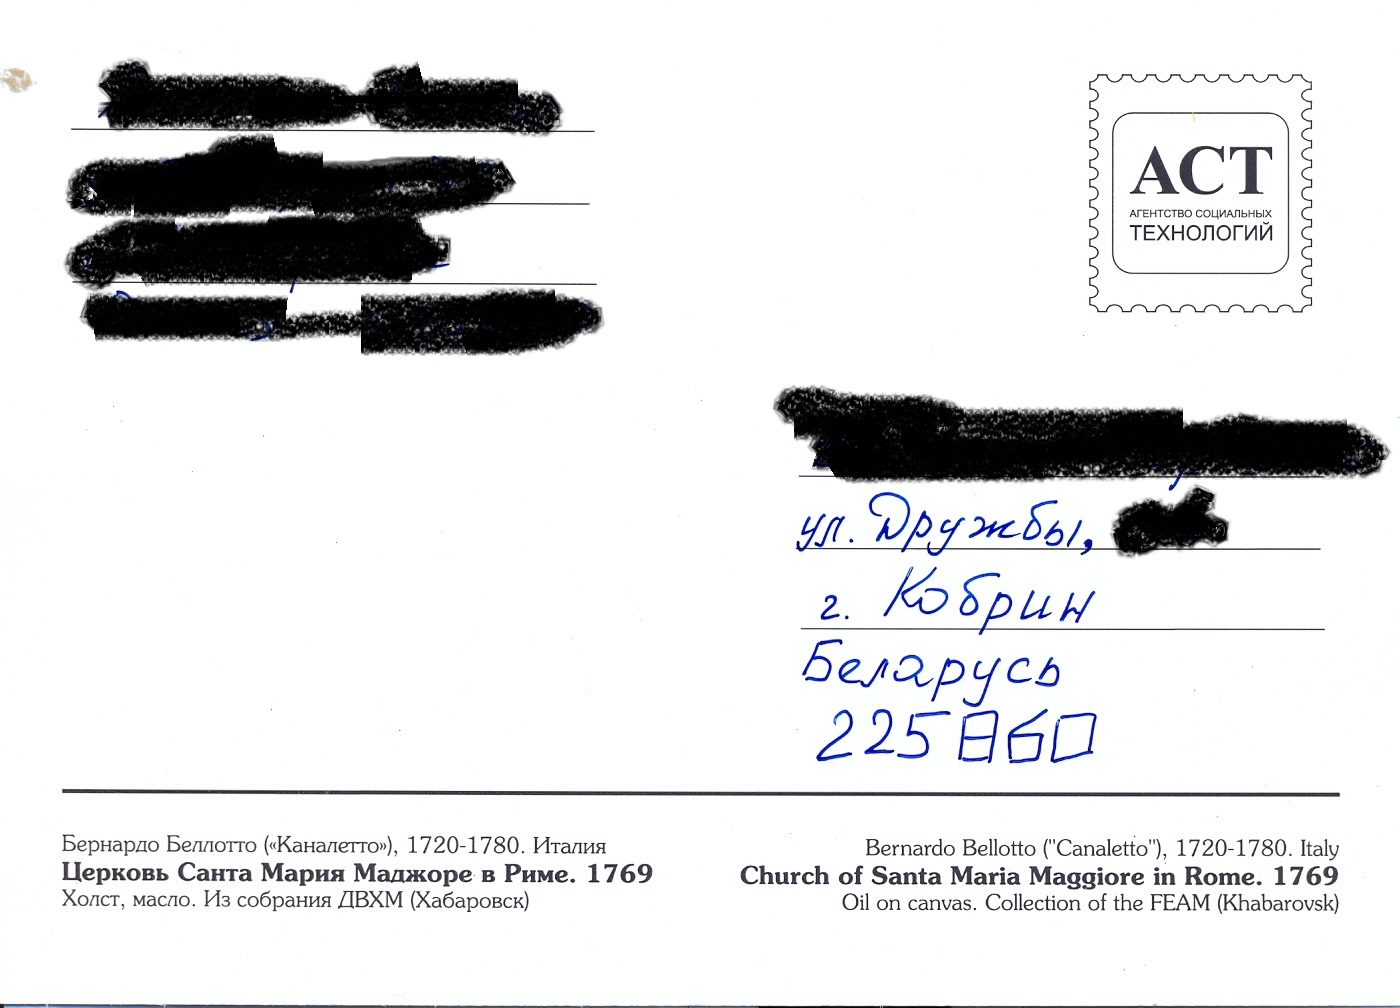 АСТ
АГЕНТСТВО СОЦИАЛЬНЫХ
ТЕХНОЛОГИЙ
ул. Дружбы,
г. Кобрин
Беларусь
225860
Бернардо Беллотто («Каналетто»), 1720-1780. Италия
Церковь Санта Мария Маджоре в Риме. 1769
Холст, масло. Из собрания ДВХМ (Хабаровск)
Bernardo Bellotto ("Canaletto"), 1720-1780. Italy
Church of Santa Maria Maggiore in Rome. 1769
Oil on canvas. Collection of the FEAM (Khabarovsk)